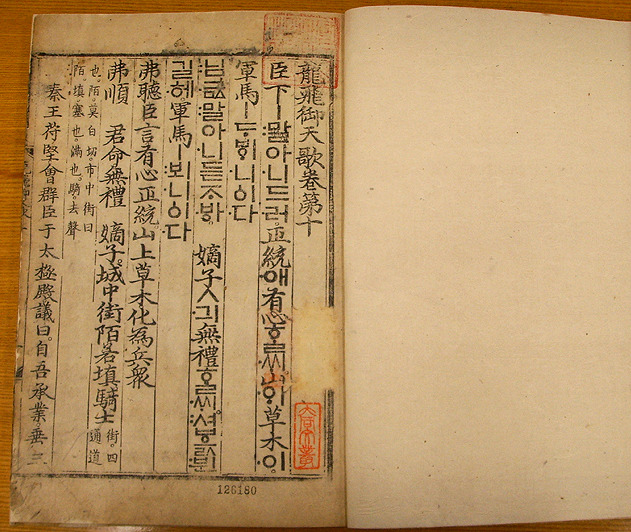 龍飛御天歌卷第十
臣下ㅣ말아니드러。正統애有心ᄒᆞᆯᄊᆡ。山ㅅ草木이。
軍馬ㅣᄃᆞᄫᆡ니ᅌᅵ다
님금말아니듣ᄌᆞᄫᅡ。 嫡子ㅅ긔無禮ᄒᆞᆯᄊᆡ。셔ᄫᅳᇙ뷘
길헤軍馬ㅣ뵈니ᅌᅵ다
弗聽臣言有心正統山上草木化爲兵衆
弗順 君命無禮 嫡子。城中街陌若填騎士
街。四
通道
也。陌。莫白切。市中街曰
陌。填。塞也。滿也。騎。去聲
秦王苻堅會群臣于太極殿議曰。自吾承業垂三
126180